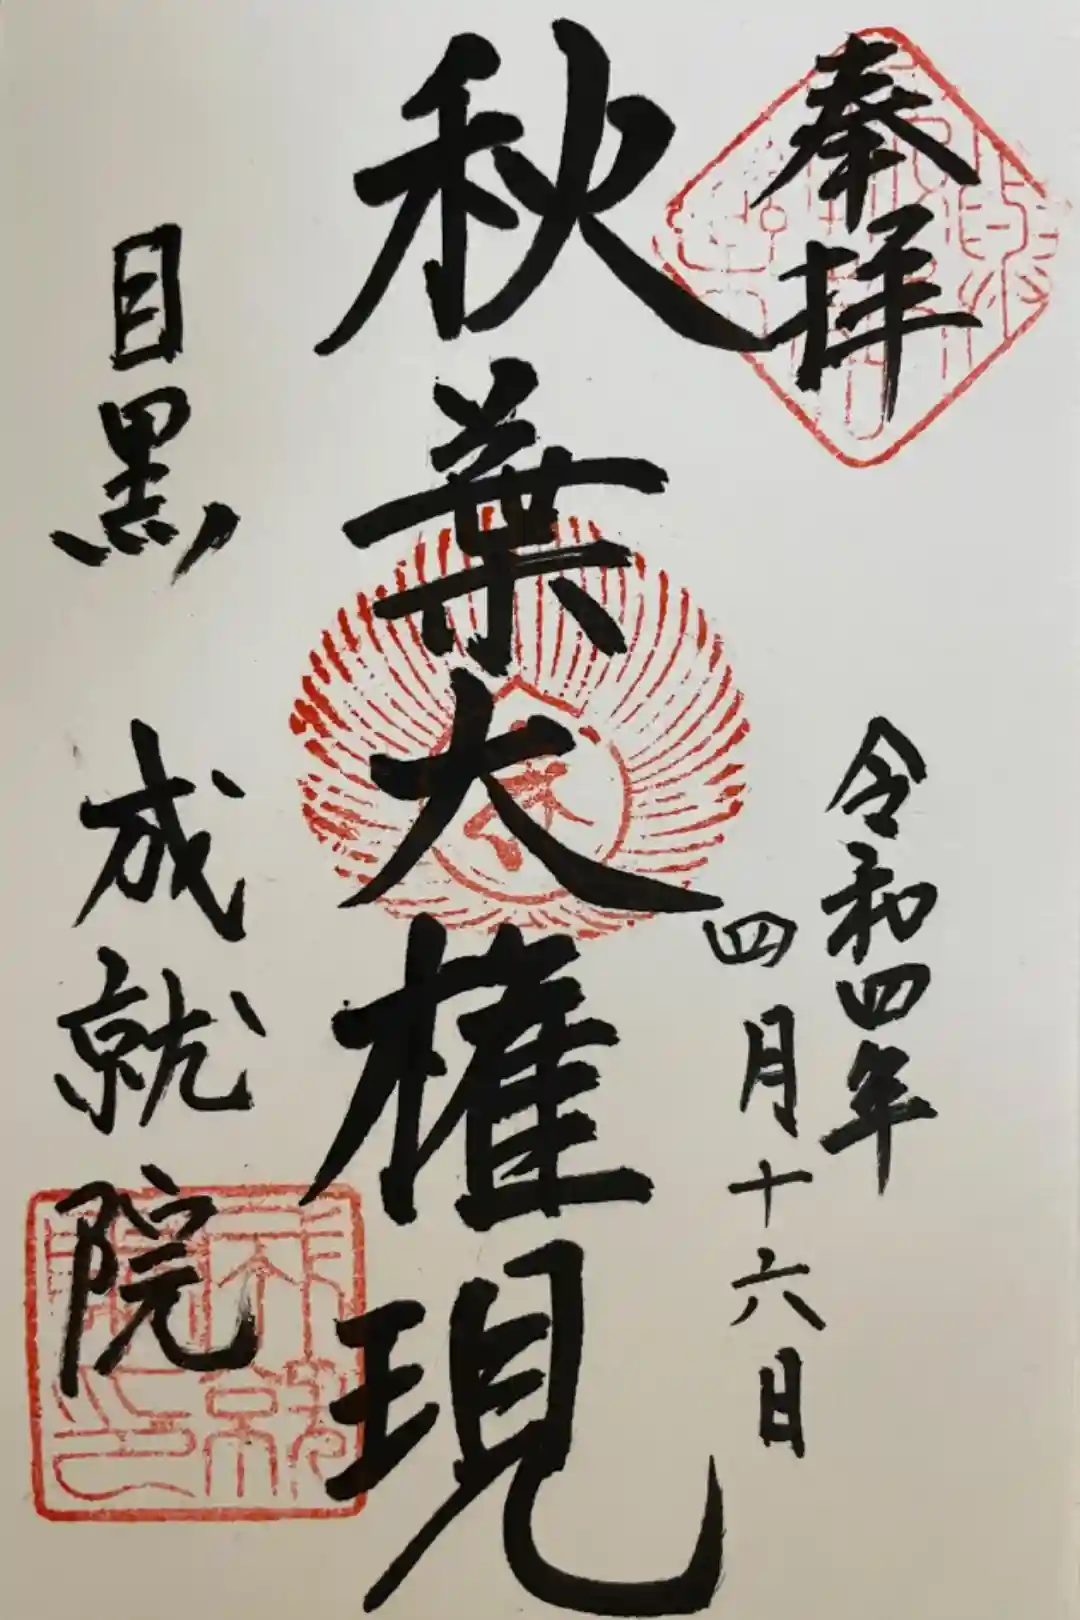 奉拝
令和四年
四月十六日
秋葉大権現
目黒 成就院